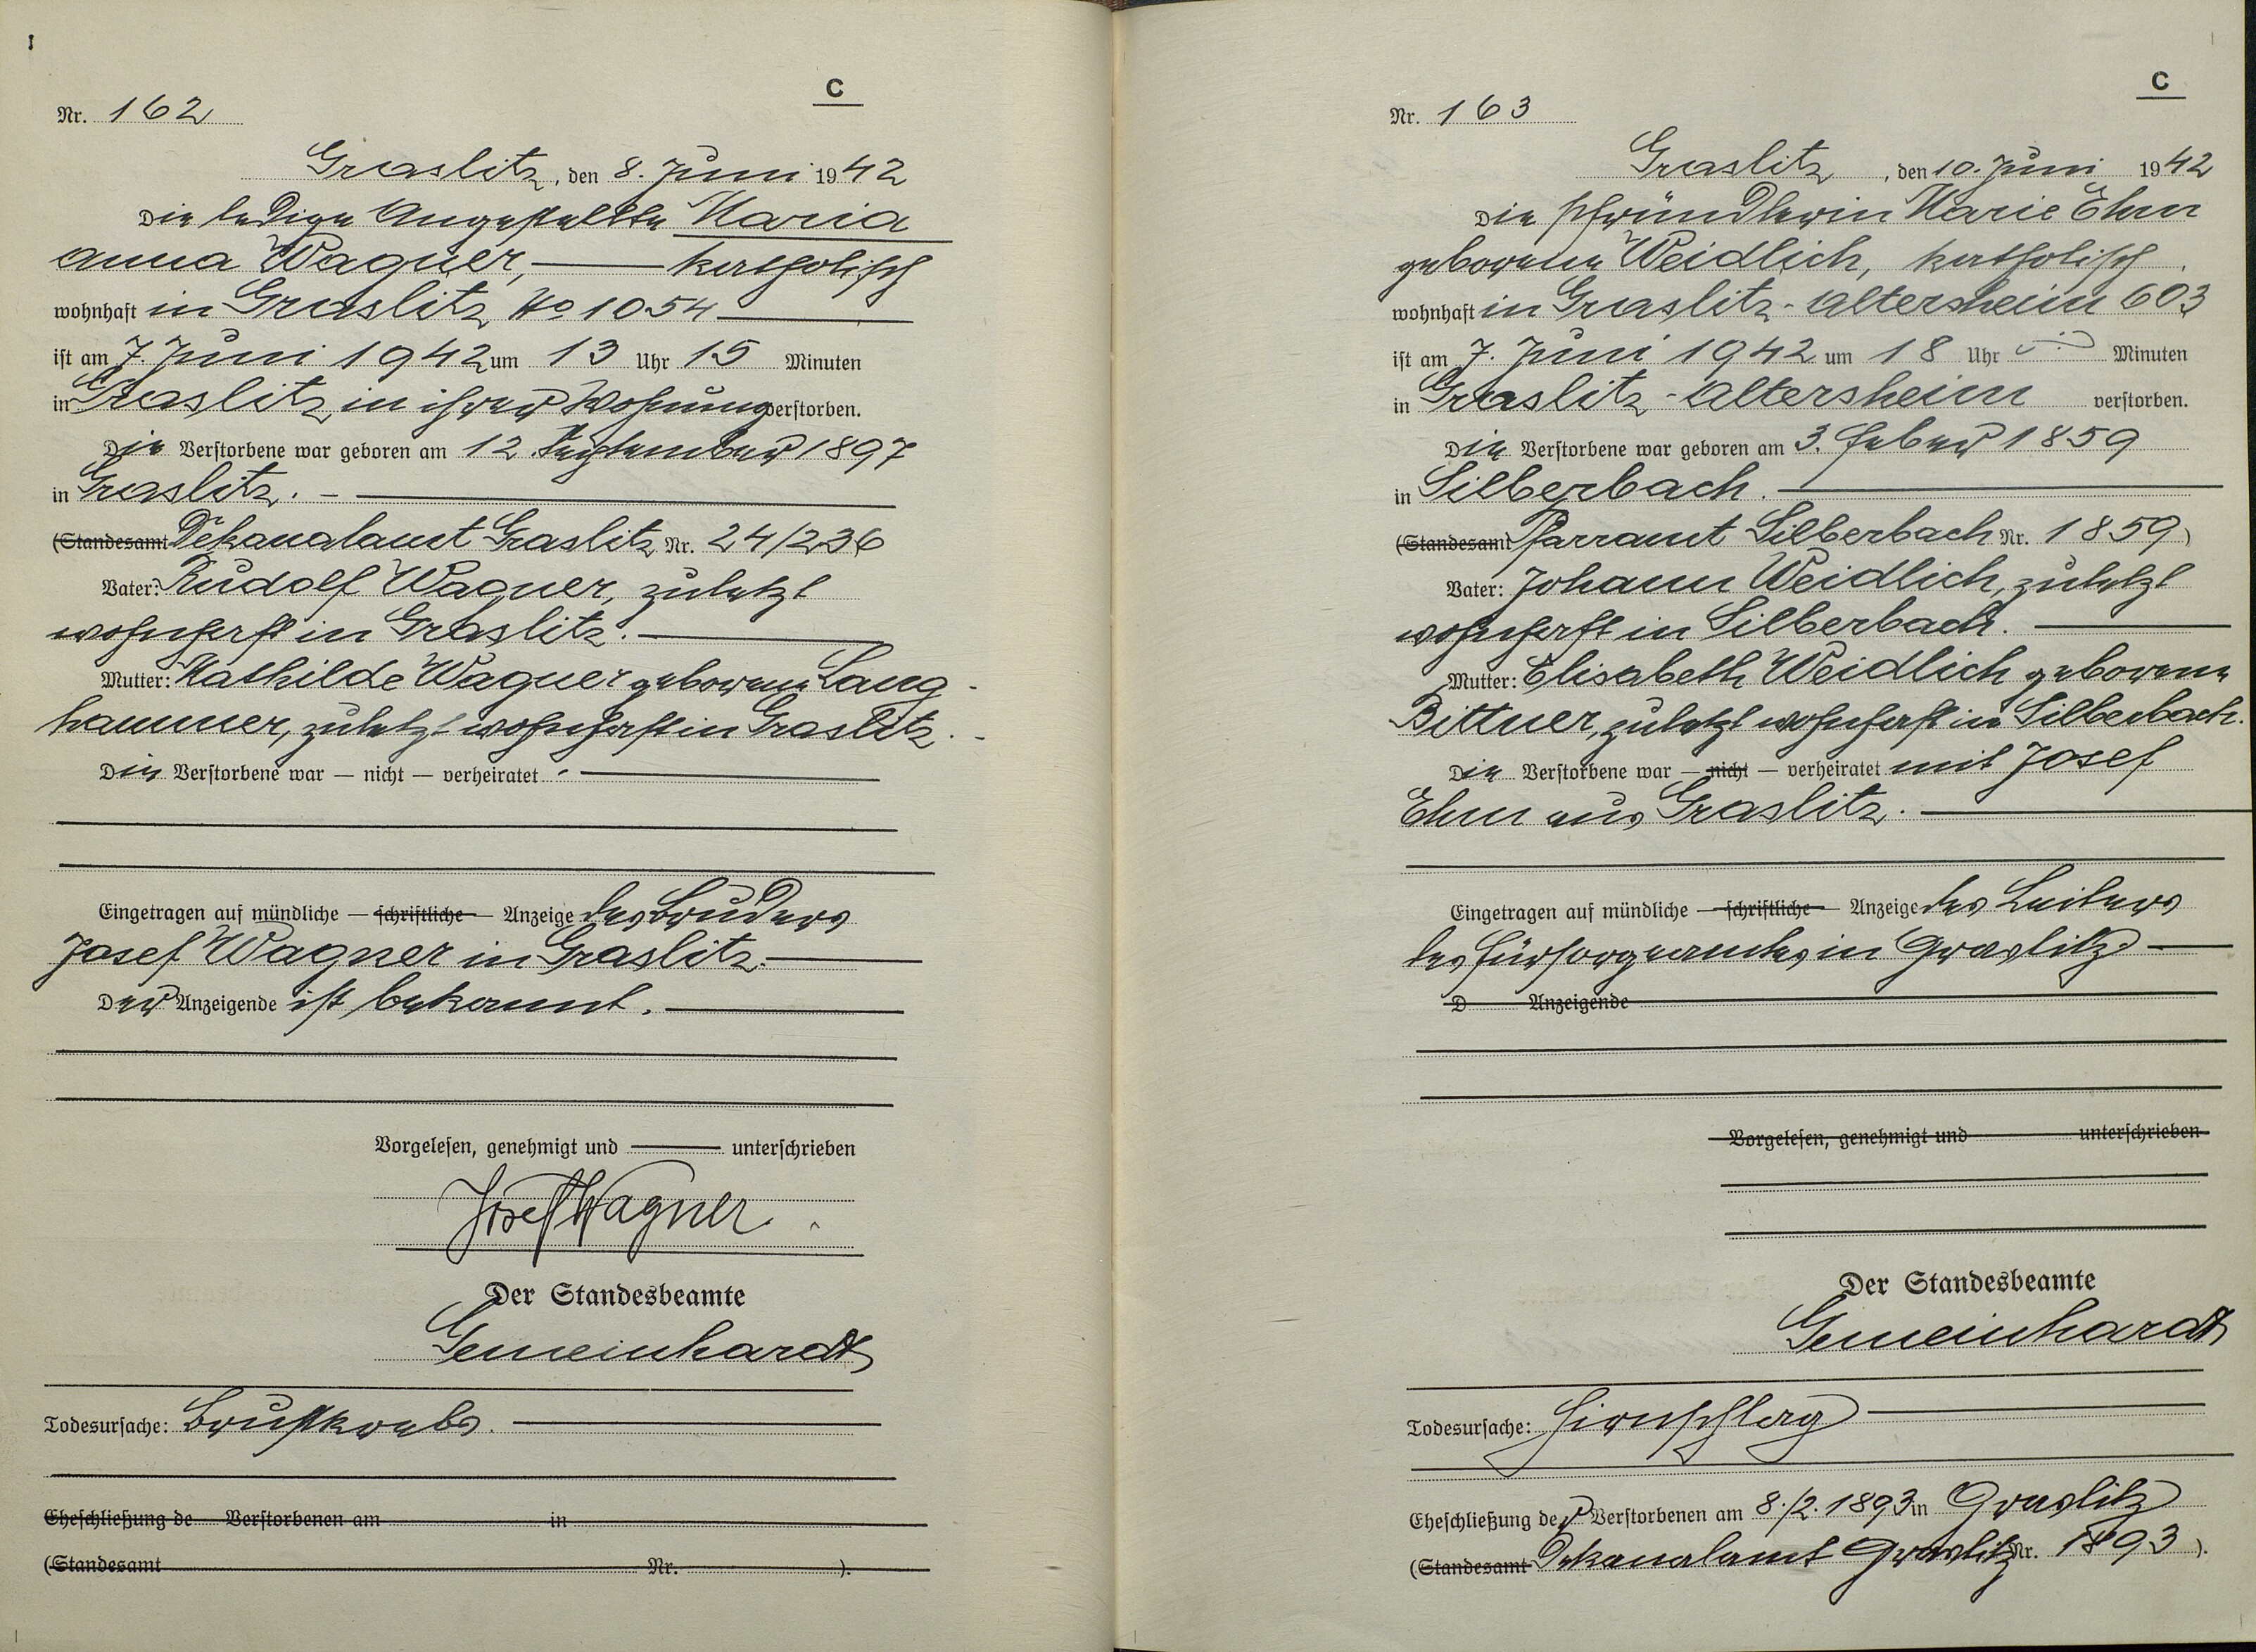 C
Nr. 162
Graslitz, den 8. Juni 1942
Die ledige Angestellte Maria
Anna Wagner, — katholisch
wohnhaft in Graslitz No 1054
ist am 7. Juni 1942 um 13 Uhr 15 Minuten
in Graslitz in ihrer Wohnung verstorben.
Die Verstorbene war geboren am 12. September 1897
in Graslitz. -
(Standesamt Dekanalamt Graslitz Nr. 24/236
Vater: Rudolf Wagner, zuletzt
wohnhaft in Graslitz.
Mutter: Mathilde Wagner geborene Lang-
hammer, zuletzt wohnhaft in Graslitz. -
Die Verstorbene war — nicht — verheiratet.
Eingetragen auf mündliche — schriftliche — Anzeige des Bruders
Josef Wagner in Graslitz.
Der Anzeigende ist bekannt.
Vorgelesen, genehmigt und — unterschrieben
Josef Wagner
Der Standesbeamte
Gemeinhardt
Todesursache: Brustkrebs.
Eheschließung de Verstorbenen am in
(Standesamt Nr. ).
C
Nr. 163
Graslitz, den 10. Juni 1942
Die Pfründlerin Marie Ehm
geborene Weidlich, katholisch
wohnhaft in Graslitz - Altersheim 603
ist am 7. Juni 1942 um 18 Uhr Minuten
in Graslitz - Altersheim verstorben.
Die Verstorbene war geboren am 3. Feber 1859
in Silberbach.
(Standesamt Pfarramt Silberbach Nr. 1859)
Vater: Johann Weidlich, zuletzt
wohnhaft in Silberbach.
Mutter: Elisabeth Weidlich geborene
Bittner, zuletzt wohnhaft in Silberbach.
Die Verstorbene war — nicht — verheiratet mit Josef
Ehm aus Graslitz.
Eingetragen auf mündliche — schriftliche — Anzeige des Leiters
des Fürsorgeamtes in Graslitz
D Anzeigende
Vorgelesen, genehmigt und unterschrieben
Der Standesbeamte
Gemeinhardt
Todesursache: Hirnschlag
Eheschließung der Verstorbenen am 8./2. 1893 in Graslitz
(Standesamt Dekanalamt Graslitz Nr. 1893 ).